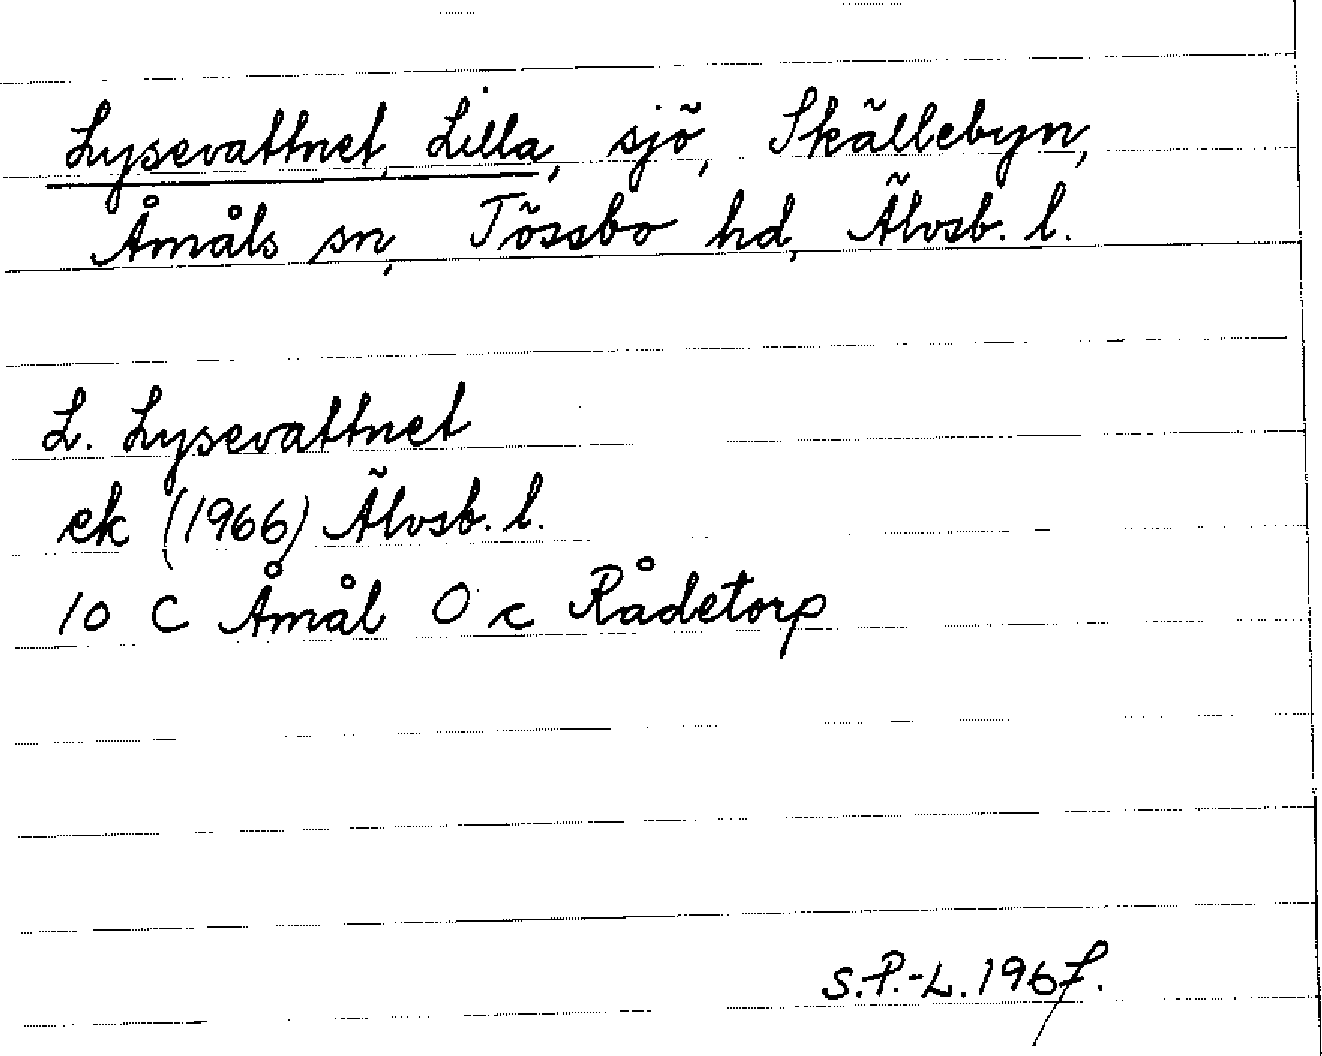 Lysevattnet, Lilla, sjö, Skällebyn,
Åmåls sn, Tössbo hd, Älvsb. l.
L. Lysevattnet
ek (1966) Älvsb. l.
10 C Åmål O c Rådetorp
S.P.-L. 1967.